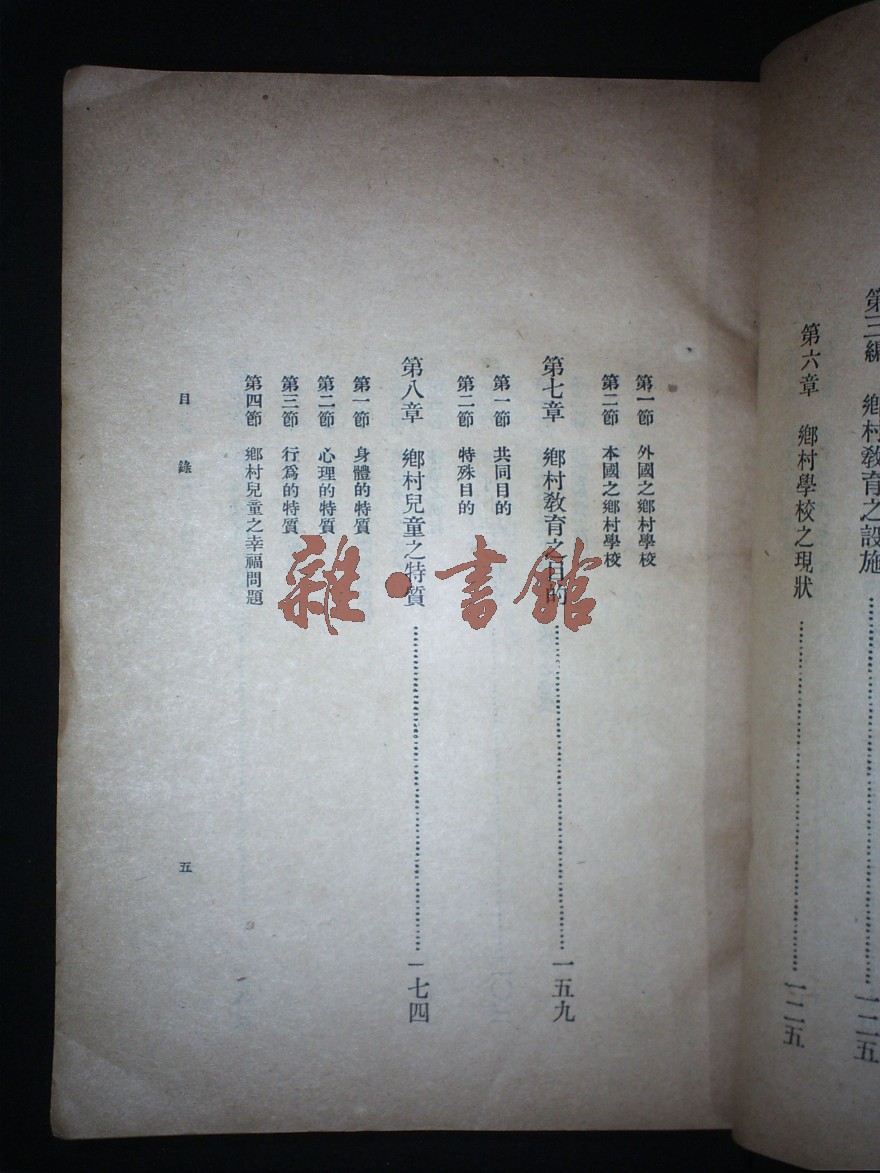 第三編 鄉村教育之設施……一二五
第六章 鄉村學校之現狀……一二五
第一節 外國之鄉村學校
第二節 本國之鄉村學校
第七章 鄉村教育之目的……一五九
第一節 共同目的
第二節 特殊目的
第八章 鄉村兒童之特質……一七四
第一節 身體的特質
第二節 心理的特質
第三節 行爲的特質
第四節 鄉村兒童之幸福問題
目錄 五
雜·書館